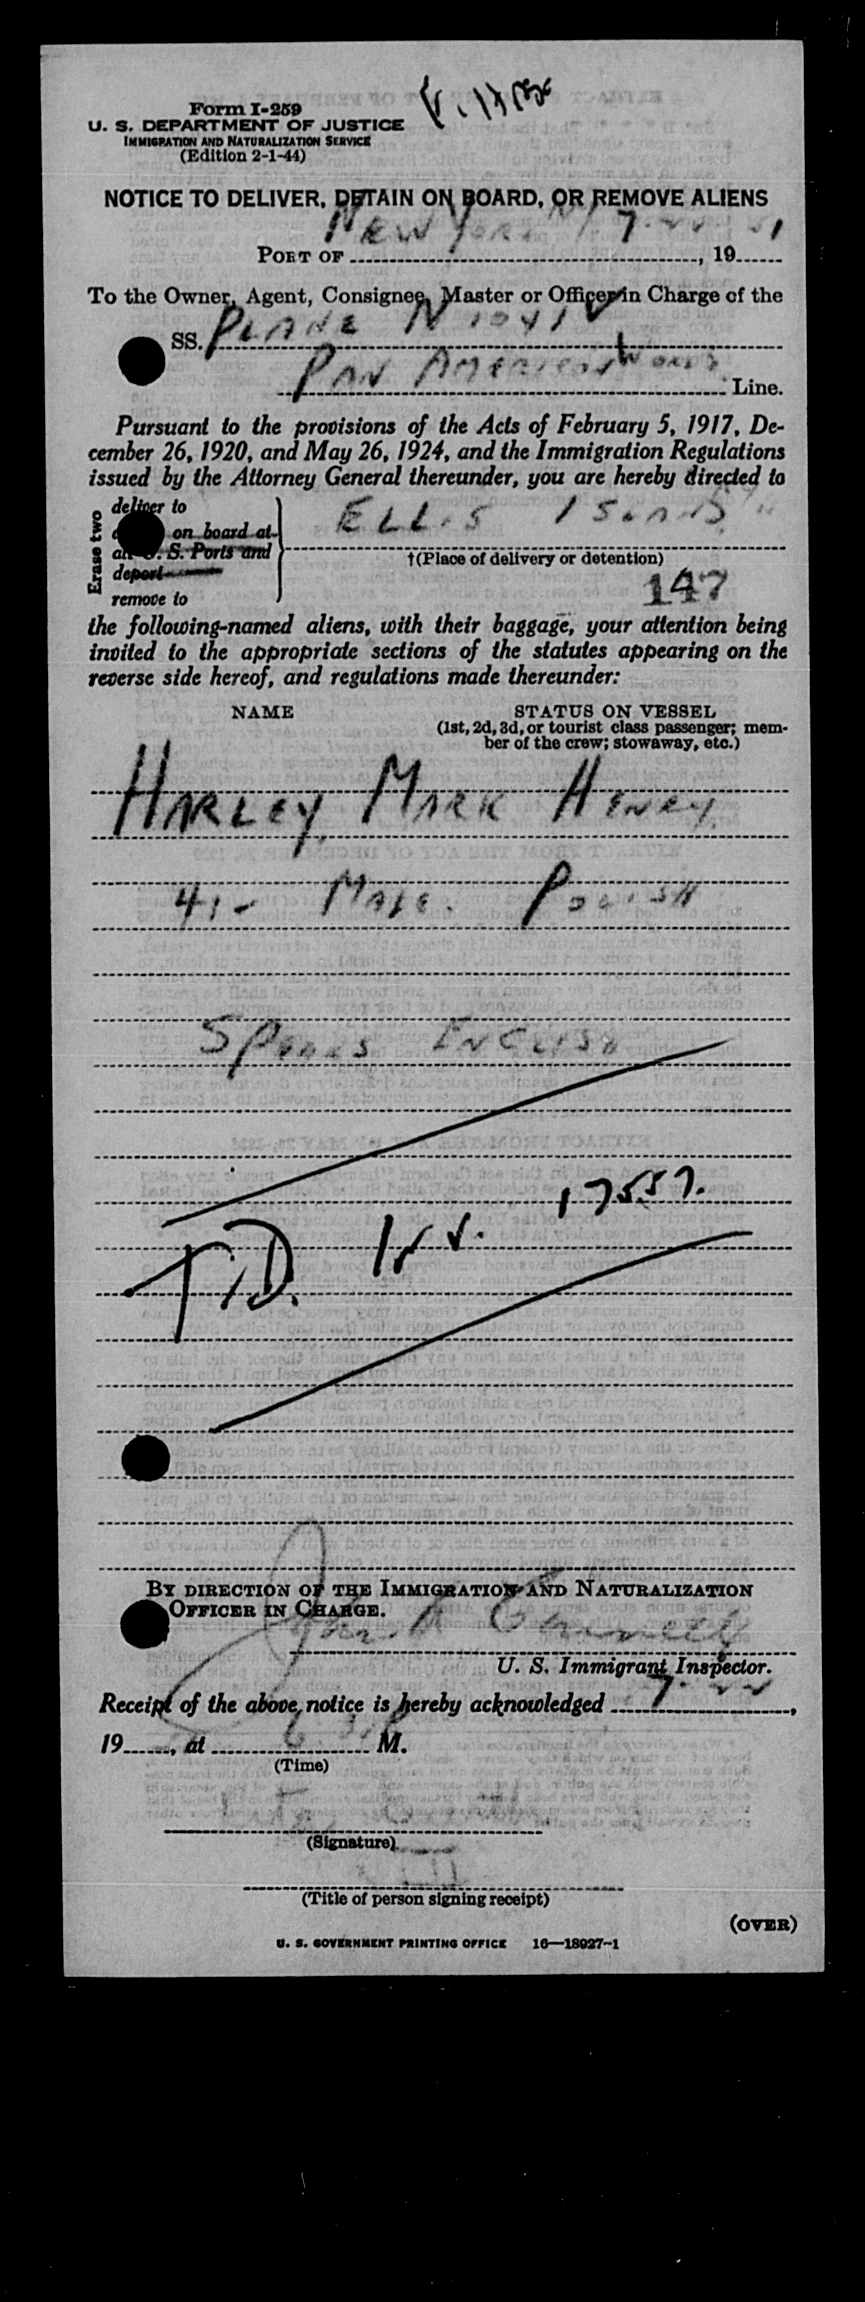 Form I-259
U. S. DEPARTMENT OF JUSTICE
IMMIGRATION AND NATURALIZATION SERVICE
(Edition 2-1-44)
NOTICE TO DELIVER, DETAIN ON BOARD, OR REMOVE ALIENS
NEW YORK
PORT OF , 19
To the Owner, Agent, Consignee, Master or Officer in Charge of the
SS. PLANE N 1041V
PAN AMERICAN WORLD Line.
Pursuant to the provisions of the Acts of February 5, 1917, De-
cember 26, 1920, and May 26, 1924, and the Immigration Regulations
issued by the Attorney General thereunder, you are hereby directed to
Erase two
deliver to
on board at
all U. S. Ports and
deport
remove to
ELLIS ISLAND
†(Place of delivery or detention)
147
the following-named aliens, with their baggage, your attention being
invited to the appropriate sections of the statutes appearing on the
reverse side hereof, and regulations made thereunder:
NAME STATUS ON VESSEL
(1st, 2d, 3d, or tourist class passenger; mem-
ber of the crew; stowaway, etc.)
HARLEY, MARK HENRY
41- MALE. POLISH
SPEAKS ENGLISH
17557.
T.D.
BY DIRECTION OF THE IMMIGRATION AND NATURALIZATION
OFFICER IN CHARGE.
U. S. Immigrant Inspector.
Receipt of the above notice is hereby acknowledged 7-22,
19, at M.
(Time)
(Signature)
(Title of person signing receipt)
(OVER)
U. S. GOVERNMENT PRINTING OFFICE 16—18927-1